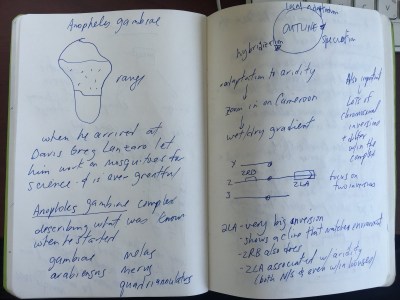 Anopheles gambiae
range
when he arrived at
Davis Greg Lanzaro let
him work on mosquitoes for
science & is ever grateful
Anopheles gambiae complex
describing what was known
when he started
gambiae melas
arabiensis merus
quadriannulatus
local adaptation
OUTLINE
Speciation
hybridization
adaptation to aridity
zoom in on Cameroon
wet/dry gradient
Also important
Lots of
chromosomal
inversions
w/in the
complex
X
2 2Rb 2La
3
focus on
two inversions
2La - very big inversion
- shows a cline that matches environment
- 2Rb also does
- 2La associated w/ aridity
(both M/S & even w/in